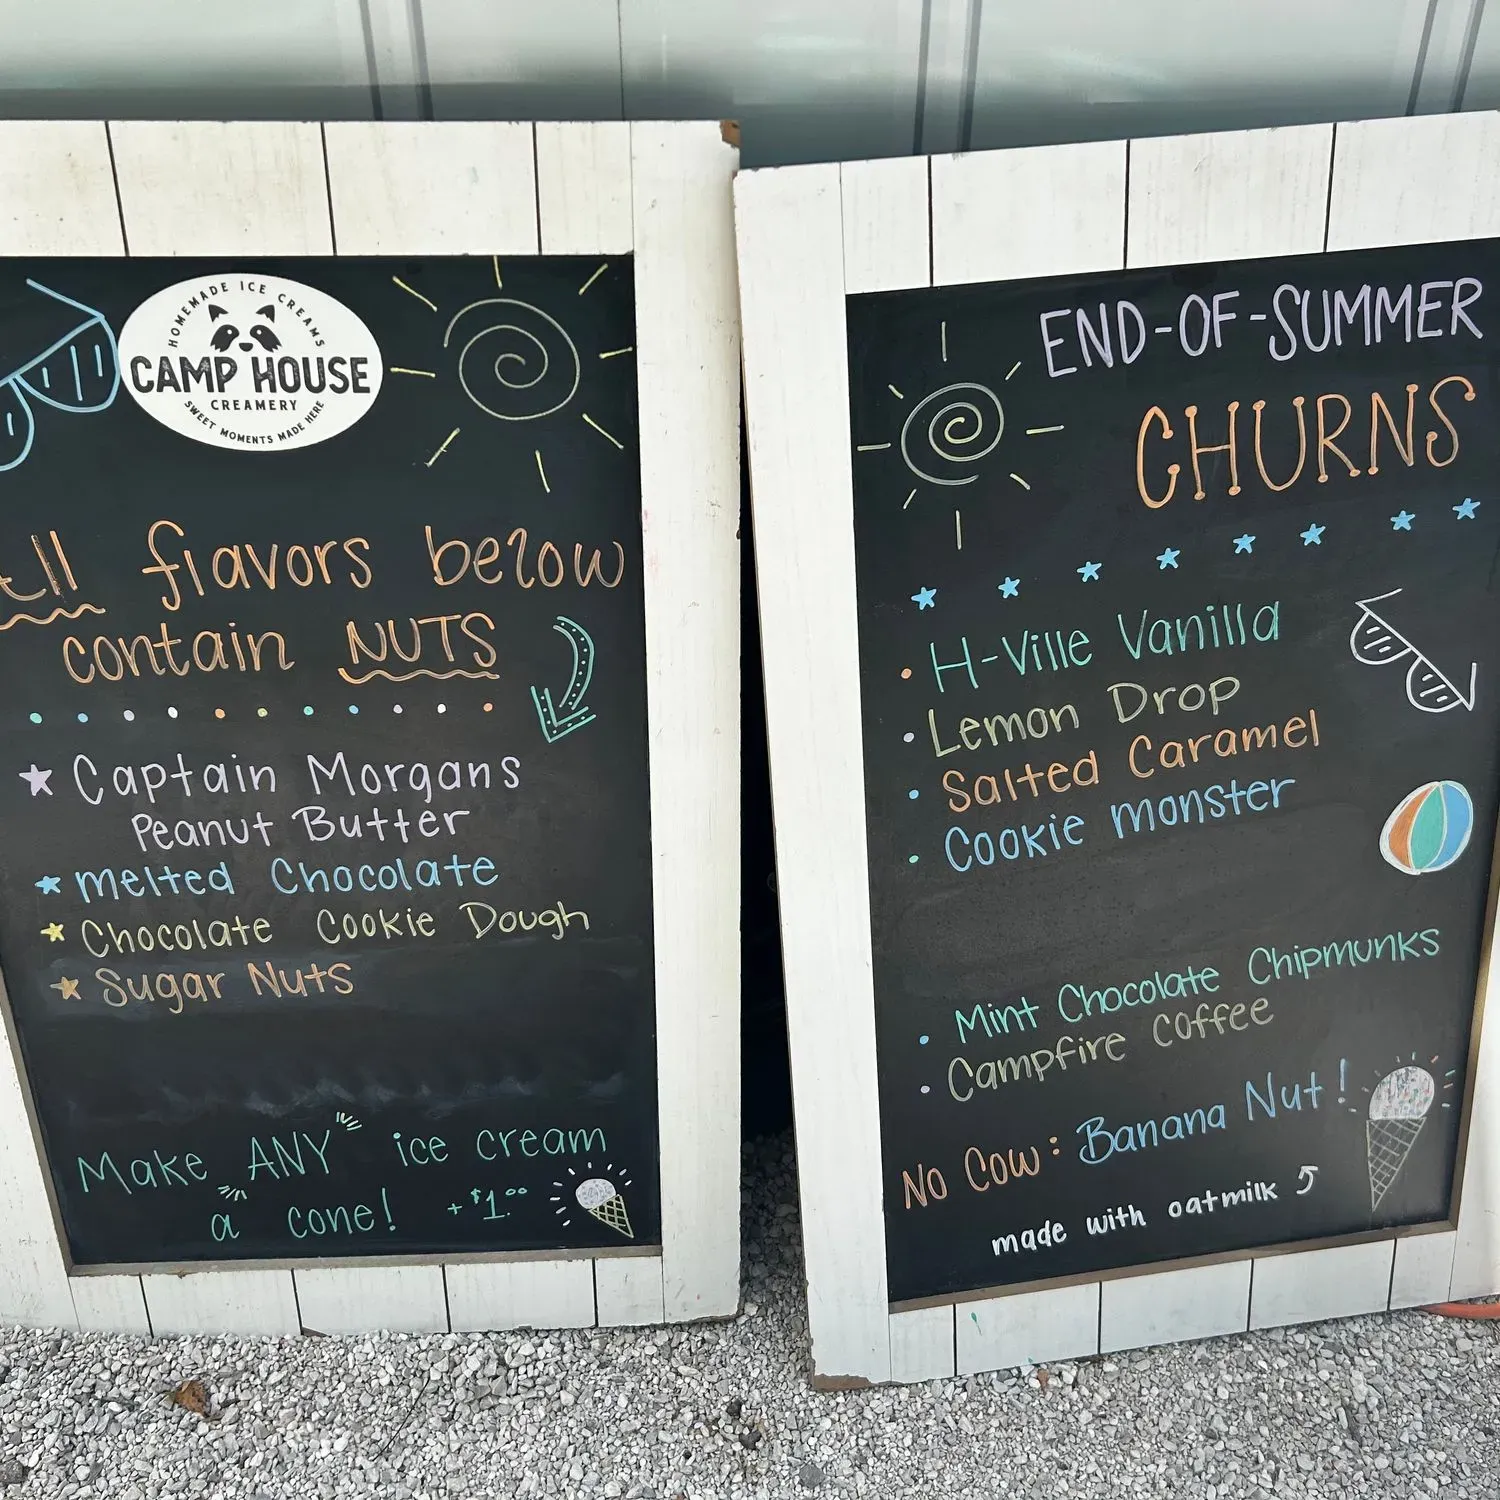 HOMEMADE ICE CREAMS
CAMP HOUSE
CREAMERY
SWEET MOMENTS MADE HERE
All flavors below
contain NUTS
Captain Morgans
Peanut Butter
Melted Chocolate
Chocolate Cookie Dough
Sugar Nuts
Make ANY ice cream
a cone! +$1.00
END-OF-SUMMER
CHURNS
H-Ville Vanilla
Lemon Drop
Salted Caramel
Cookie Monster
Mint Chocolate Chipmunks
Campfire Coffee
No Cow: Banana Nut!
made with oatmilk